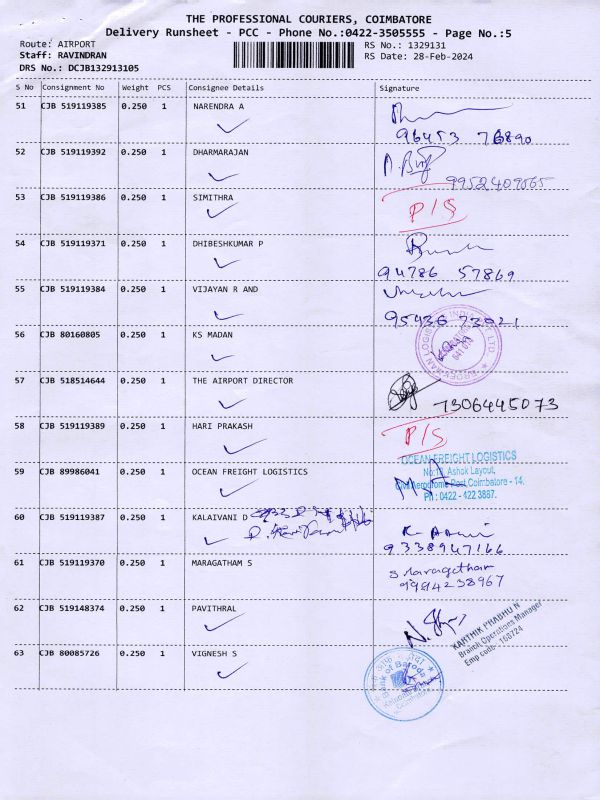 THE PROFESSIONAL COURIERS, COIMBATORE
Delivery Runsheet - PCC - Phone No.:0422-3505555 - Page No.:5
Route: AIRPORT
Staff: RAVINDRAN
DRS No.: DCJB132913105
RS No.: 1329131
RS Date: 28-Feb-2024
S No Consignment No Weight PCS Consignee Details Signature
51 CJB 519119385 0.250 1 NARENDRA A
96453 76890
52 CJB 519119392 0.250 1 DHARMARAJAN
9952409565
53 CJB 519119386 0.250 1 SIMITHRA
P/S
54 CJB 519119371 0.250 1 DHIBESHKUMAR P
94786 57869
55 CJB 519119384 0.250 1 VIJAYAN R AND
95436 73021
56 CJB 80160805 0.250 1 KS MADAN
57 CJB 518514644 0.250 1 THE AIRPORT DIRECTOR
7306445073
58 CJB 519119389 0.250 1 HARI PRAKASH
P/S
59 CJB 89986041 0.250 1 OCEAN FREIGHT LOGISTICS
OCEAN FREIGHT LOGISTICS
No:10, Ashok Layout,
Civil Aerodrome Post, Coimbatore - 14.
Ph : 0422 - 422 3887.
60 CJB 519119387 0.250 1 KALAIVANI D
9338947166
61 CJB 519119370 0.250 1 MARAGATHAM S
S Maragatham
9994238967
62 CJB 519148374 0.250 1 PAVITHRAL
KARTHIK PRABHU N
Branch Operations Manager
Emp code- 168724
63 CJB 80085726 0.250 1 VIGNESH S
Bank of Baroda
Coimbatore